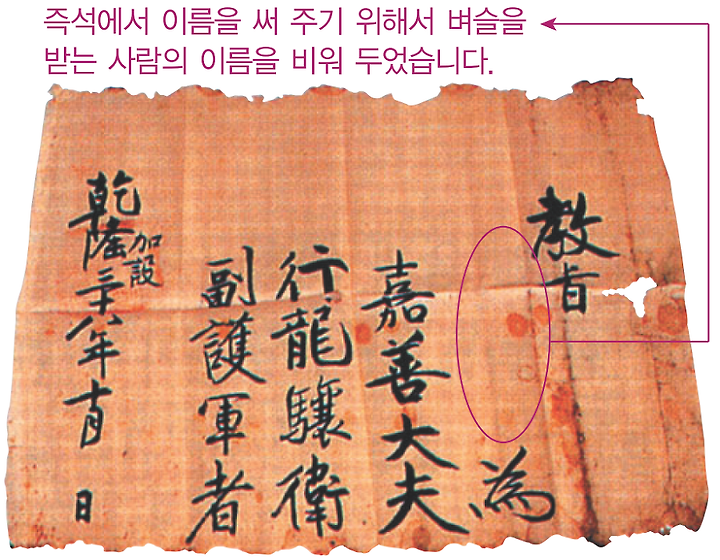 즉석에서 이름을 써 주기 위해서 벼슬을
받는 사람의 이름을 비워 두었습니다.
教旨
為
嘉善大夫
行龍驤衛
副護軍者
加設
乾隆三十八年十月 日